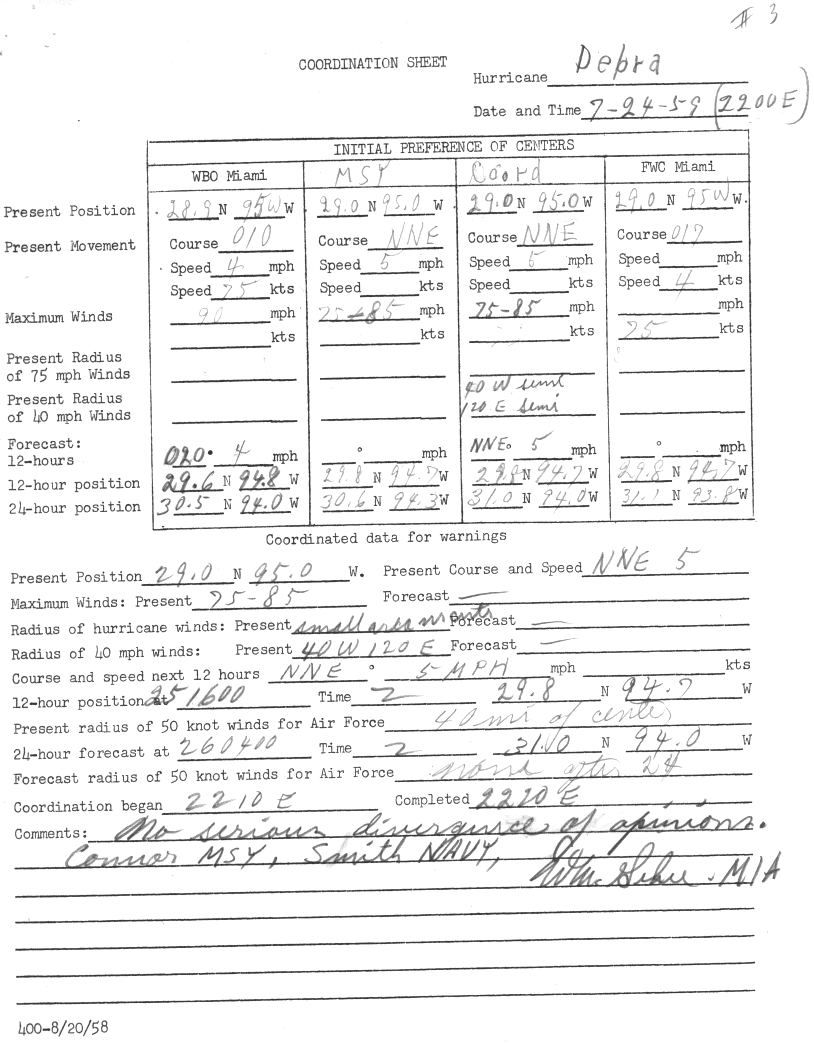 # 3
COORDINATION SHEET
Hurricane Debra
Date and Time 7-24-59 (2200E)
INITIAL PREFERENCE OF CENTERS
WBO Miami MSY Coord FWC Miami
Present Position 28.9 N 95W W 29.0 N 95.0 W 29.0 N 95.0 W 29.0 N 95W W.
Present Movement Course 010 Course NNE Course NNE Course 017
Speed 4 mph Speed 5 mph Speed 5 mph Speed mph
Speed 75 kts Speed kts Speed kts Speed 4 kts
Maximum Winds 90 mph 75-85 mph 75-85 mph mph
kts kts kts 75
Present Radius
of 75 mph Winds
Present Radius 40 W semi
of 40 mph Winds 120 E Semi
Forecast:
12-hours 020° 4 mph ° mph NNE° 5 mph ° mph
12-hour position 29.6 N 94.8 W 29.8 N 94.7 W 29.8 N 94.7 W 29.8 N 94.7 W
24-hour position 30.5 N 94.0 W 30.6 N 94.3 W 31.0 N 94.0 W 31.1 N 93.8 W
Coordinated data for warnings
Present Position 29.0 N 95.0 W. Present Course and Speed NNE 5
Maximum Winds: Present 75-85 Forecast —
Radius of hurricane winds: Present small area nr center Forecast —
Radius of 40 mph winds: Present 40 W 120 E Forecast —
Course and speed next 12 hours NNE ° 5 MPH mph kts
12-hour position at 251600 Time Z 29.8 N 94.7 W
Present radius of 50 knot winds for Air Force 40 mi of center
24-hour forecast at 260400 Time Z 31.0 N 94.0 W
Forecast radius of 50 knot winds for Air Force none after 24
Coordination began 2210 E Completed 2220 E
Comments: No serious divergence of opinions.
Connor MSY, Smith NAVY, MIA
400-8/20/58